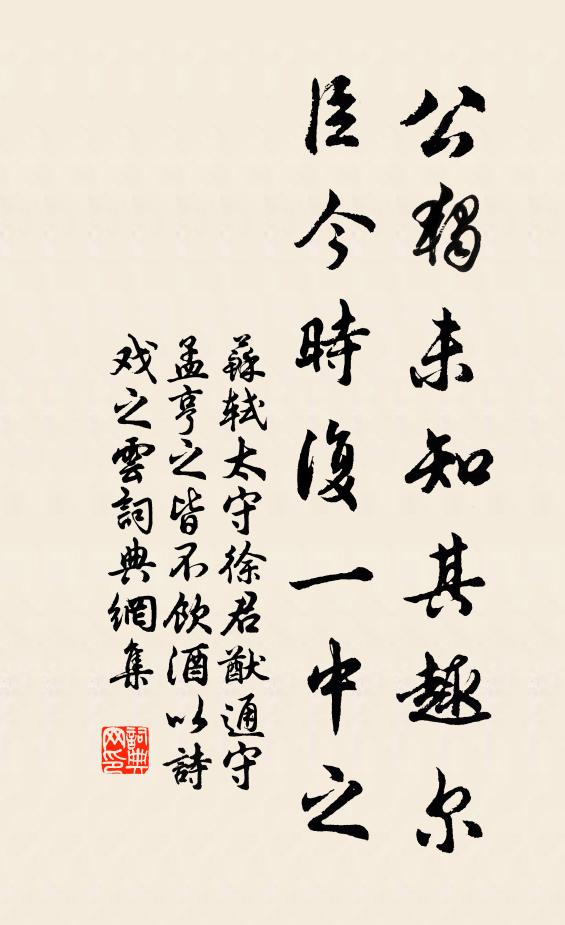 公獨未知其趣尔
臣今時復一中之
蘇軾太守徐君猷通守
孟亨之皆不飲酒以詩
戏之雲詞典網集
詞典
网印